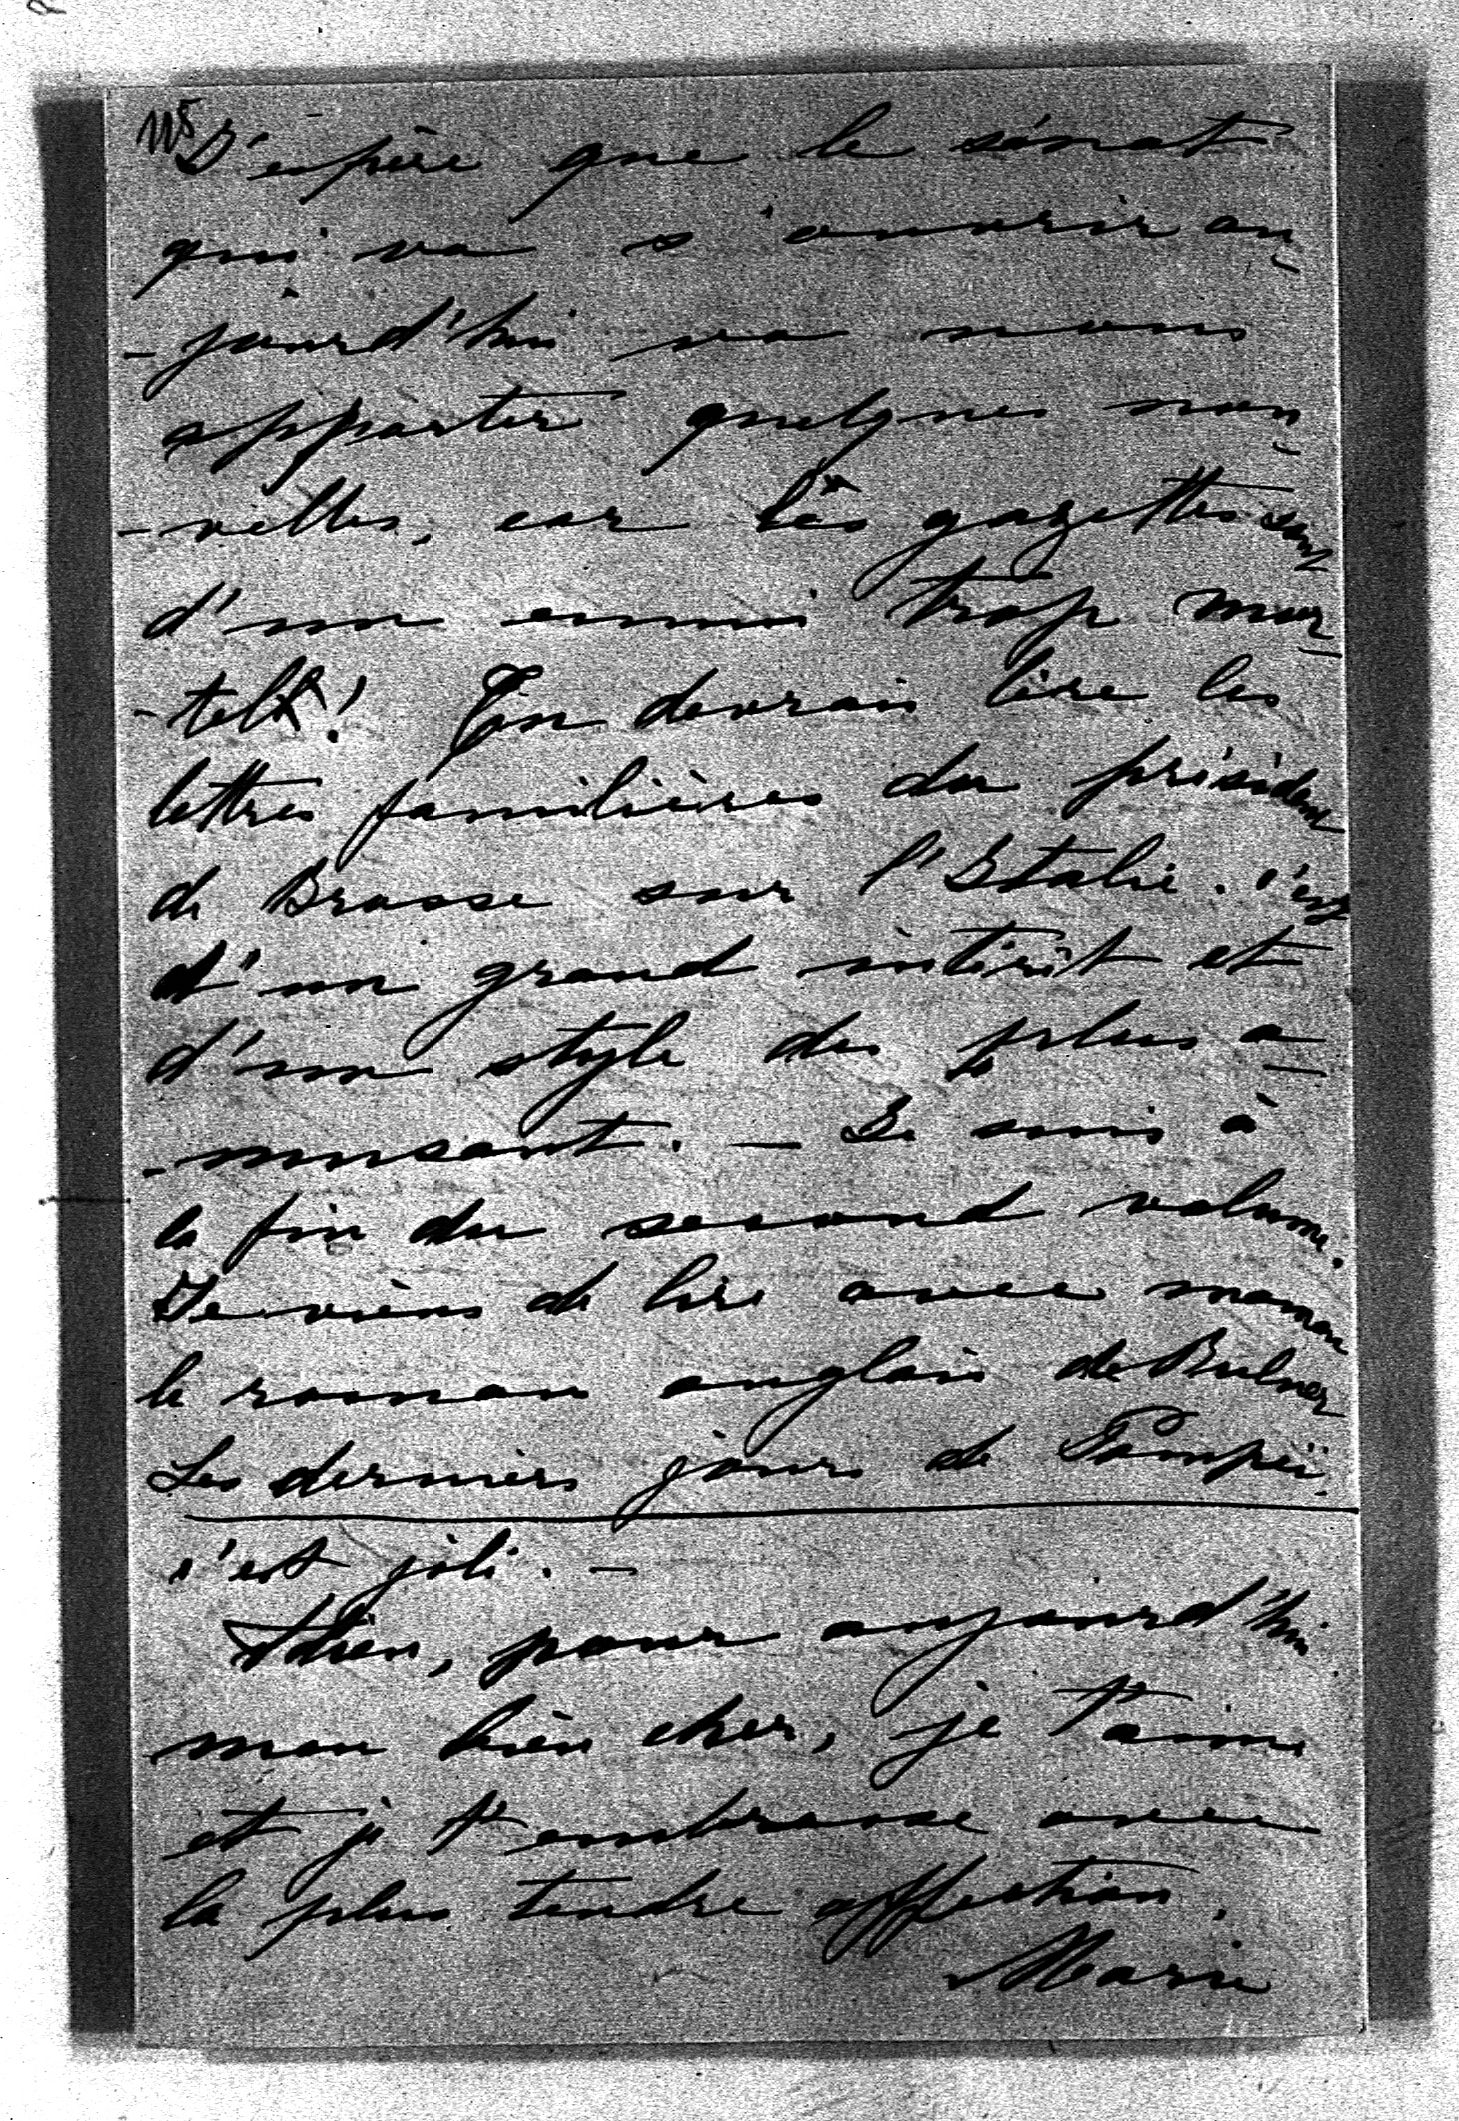 115
J'espère que le sénat
qui va s'ouvrir au
-jourd'hui va nous
apporter quelques nou
-velles, car les gazettes sont
d'un ennui trop mor
-tel! Tu devrais lire les
lettres familières du président
de Brosse sur l'Italie. c'est
d'un grand intérêt et
d'un style des plus a
-musant. — Je suis à
la fin du second volume.
Je viens de lire avec maman
le roman anglais de Bulwer
Les derniers jours de Pompéi.
c'est joli. —
Adieu, pour aujourd'hui
mon bien cher, je t'aime
et je t'embrasse avec
la plus tendre affection.
Marie